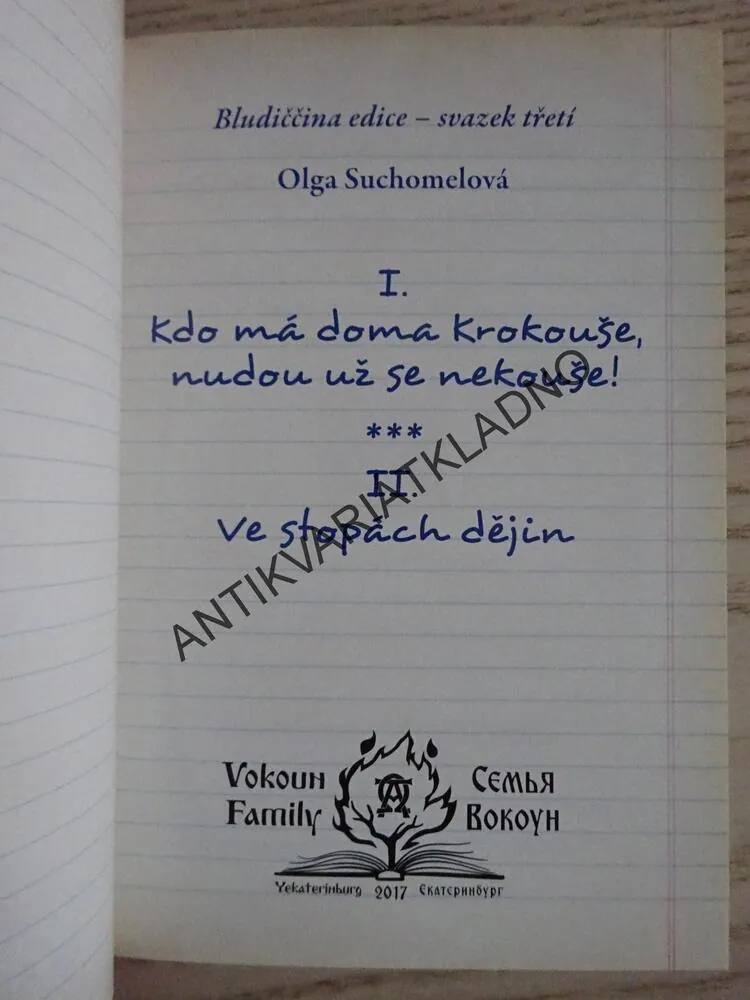 Bludiččina edice – svazek třetí
Olga Suchomelová
I.
Kdo má doma Krokouše,
nudou už se nekouše!
***
II.
Ve stopách dějin
ANTIKVARIATKLADNO
Vokoun Семья
Family Вокоун
Yekaterinburg 2017 Екатеринбург